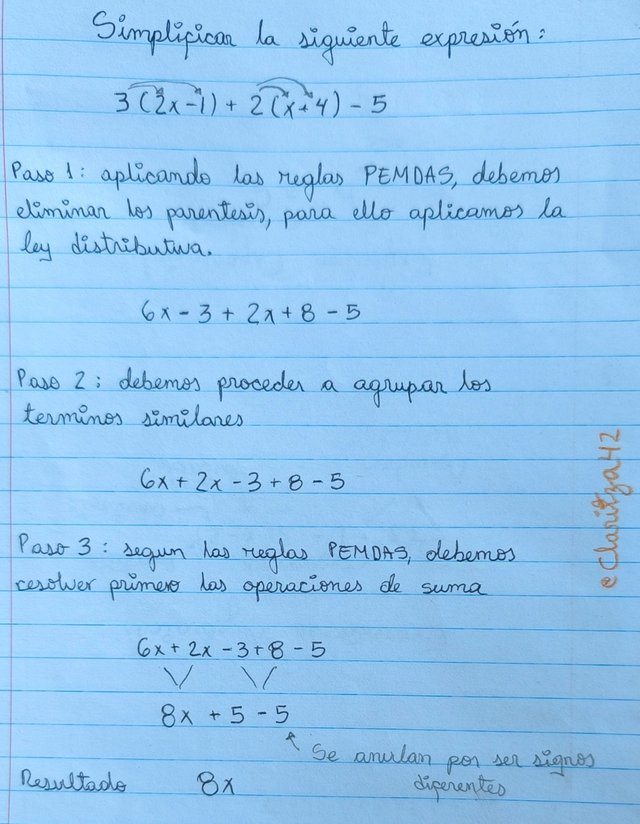 Simplificar la siguiente expresión:
3(2x-1) + 2(x+4) - 5
Paso 1: aplicando las reglas PEMDAS, debemos
eliminar los parentesis, para ello aplicamos la
ley distributiva.
6x - 3 + 2x + 8 - 5
Paso 2: debemos proceder a agrupar los
terminos similares
6x + 2x - 3 + 8 - 5
Paso 3: segun las reglas PEMDAS, debemos
resolver primero las operaciones de suma
6x + 2x - 3 + 8 - 5
8x + 5 - 5
Se anulan por ser signos
diferentes
Resultado 8x
@claritza42